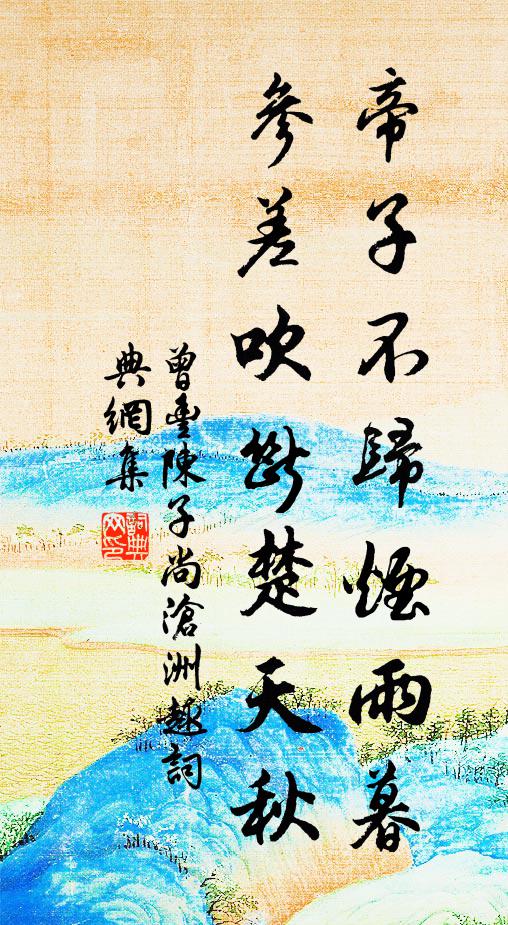 帝子不歸煙雨暮
參差吹斷楚天秋
曾豐陳子尚滄洲趣詞
典網集
詞典網印